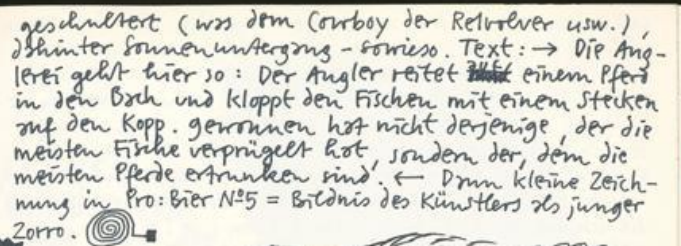 geschultert (was dem Cowboy der Relvolver usw.),
dahinter Sonnenuntergang - sowieso. Text: → Die Ang-
lerei geht hier so: Der Angler reitet einem Pferd
in den Bach und kloppt den Fischen mit einem Stecken
auf den Kopp. gewonnen hat nicht derjenige, der die
meisten Fische verprügelt hat, sondern der, dem die
meisten Pferde ertrunken sind. ← Dann kleine Zeich-
nung in Pro: Bier Nº5 = Bildnis des Künstlers als junger
Zorro.